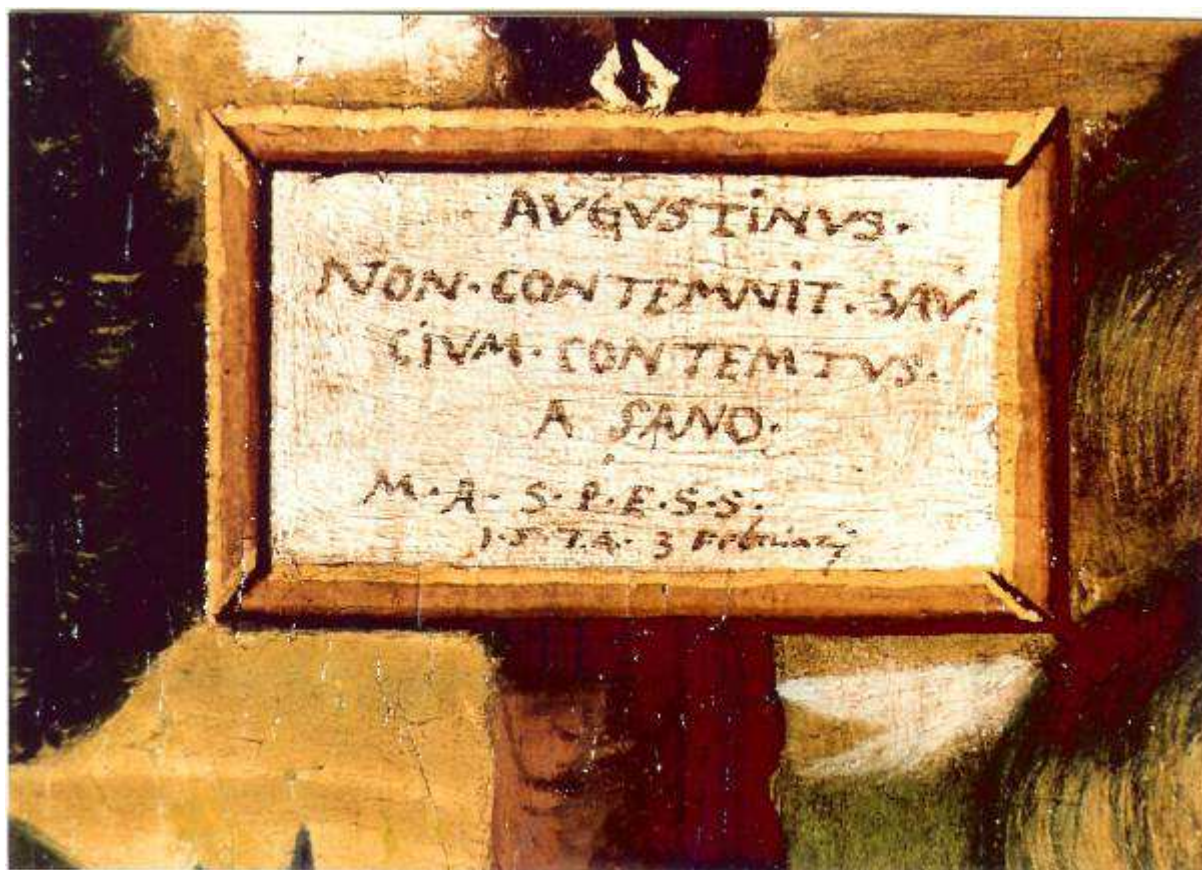 AVGVSTINVS·
NON·CONTEMNIT·SAV
CIVM·CONTEMTVS·
A SANO·
M·A·S·P·E·S·S·
3 Februarij